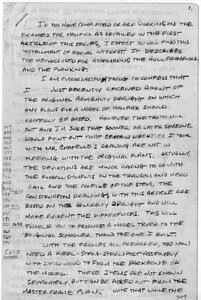 1.
If you have completed or are working on the
frames for Halifax as detailed in the first
article of this series, I expect you will find this
installment of special interest. It describes
the methods used for assembling the hull framework
and the planking.
I am furiously having to confess that
I just recently received a print of
the original Admiralty draught on which
any plan for a model of Halifax should
rightfully be based. However the truth will
out and I'm sure that sooner or later someone
would point out that certain features of
Mr. Chapelle's drawing are not in
keeping with the original plans. Actually,
the deviations are minor having to do with
the embellishments on the transom and head
rail and the profile of the stem. The
construction drawings with this article are
based on the Admiralty draught and will
make evident the differences. This will
enable you to produce a model truer to the
original schooner than the one I built.
With the frames all prepared, you now
need a keel-stem-sternpost assembly
with which to form the backbone of
the model. These items are not shown
separately, but can be copied from the
master frame plan. Note that while the